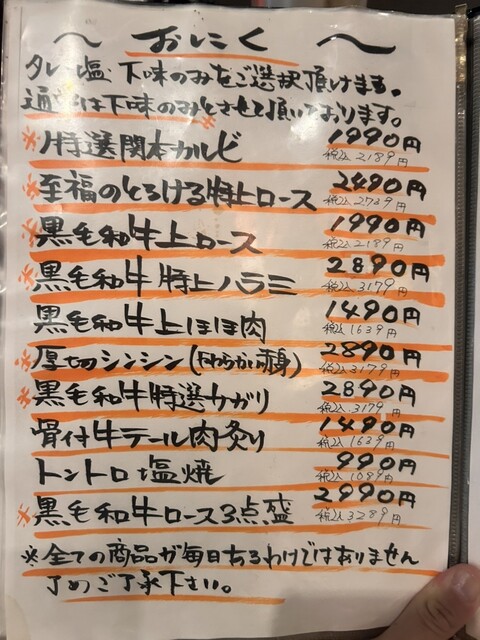 ～ おにく ～
タレ・塩・下味のみをご選択頂けます。
通常は下味のみとさせて頂いております。
※特選関本カルビ 1990円 税込2189円
※至福のとろける特上ロース 2490円 税込2739円
※黒毛和牛上ロース 1990円 税込2189円
※黒毛和牛特上ハラミ 2890円 税込3179円
黒毛和牛上ほほ肉 1490円 税込1639円
※厚切シンシン(やわらかい赤身) 2890円 税込3179円
※黒毛和牛特選サガリ 2890円 税込3179円
骨付牛テール肉炙り 1490円 税込1639円
トントロ塩焼 990円 税込1089円
※黒毛和牛ロース3点盛 2990円 税込3289円
※全ての商品が毎日あるわけではありません
予めご了承下さい。